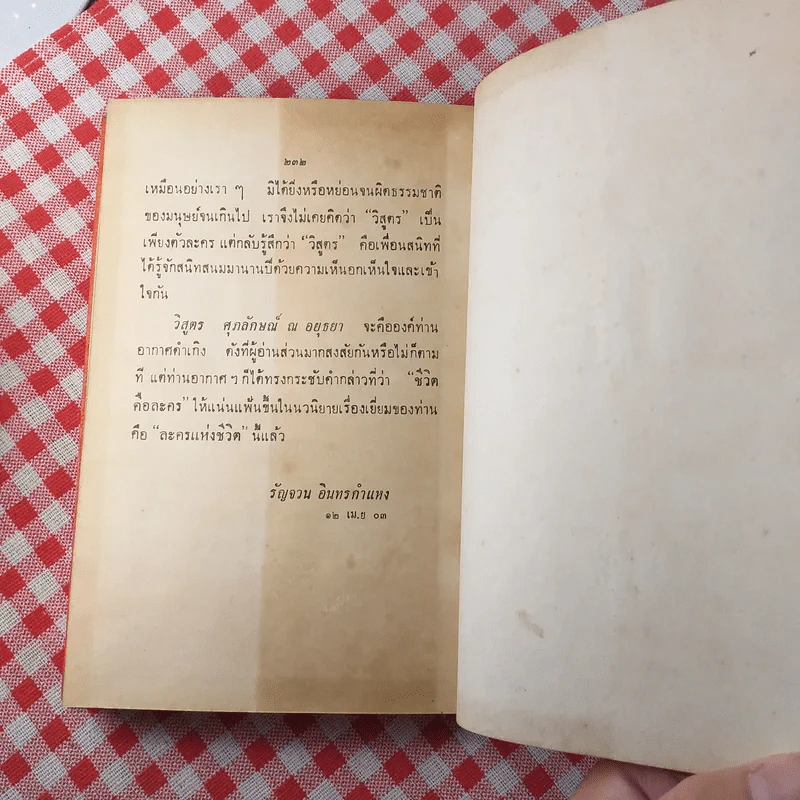 ๒๓๒
เหมือนอย่างเรา ๆ มิได้ยิ่งหรือหย่อนจนผิดธรรมชาติ
ของมนุษย์จนเกินไป เราจึงไม่เคยคิดว่า “วิสูตร” เป็น
เพียงตัวละคร แต่กลับรู้สึกว่า “วิสูตร” คือเพื่อนสนิทที่
ได้รู้จักสนิทสนมมานานปีด้วยความเห็นอกเห็นใจและเข้า
ใจกัน
วิสูตร ศุภลักษณ์ ณ อยุธยา จะคือองค์ท่าน
อากาศดำเกิง ดังที่ผู้อ่านส่วนมากสงสัยกันหรือไม่ก็ตาม
ที แต่ท่านอากาศ ฯ ก็ได้ทรงกระชับคำกล่าวที่ว่า “ชีวิต
คือละคร” ให้แน่นแฟ้นขึ้นในนวนิยายเรื่องเยี่ยมของท่าน
คือ “ละครแห่งชีวิต” นี้แล้ว
รัญจวน อินทรกำแหง
๑๒ เม.ย ๐๓